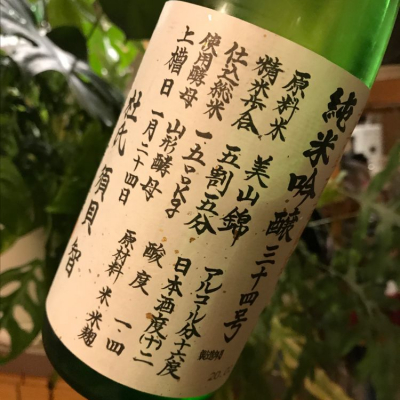 純米吟醸三十四号
原料米 美山錦
精米歩合 五割五分
仕込総米 一五〇〇kg
使用酵母 山形酵母
上槽日 一月二十四日
アルコル分十六度
日本酒度(+)二
酸度 一・四
原材料 米 米麹
杜氏 須貝 智